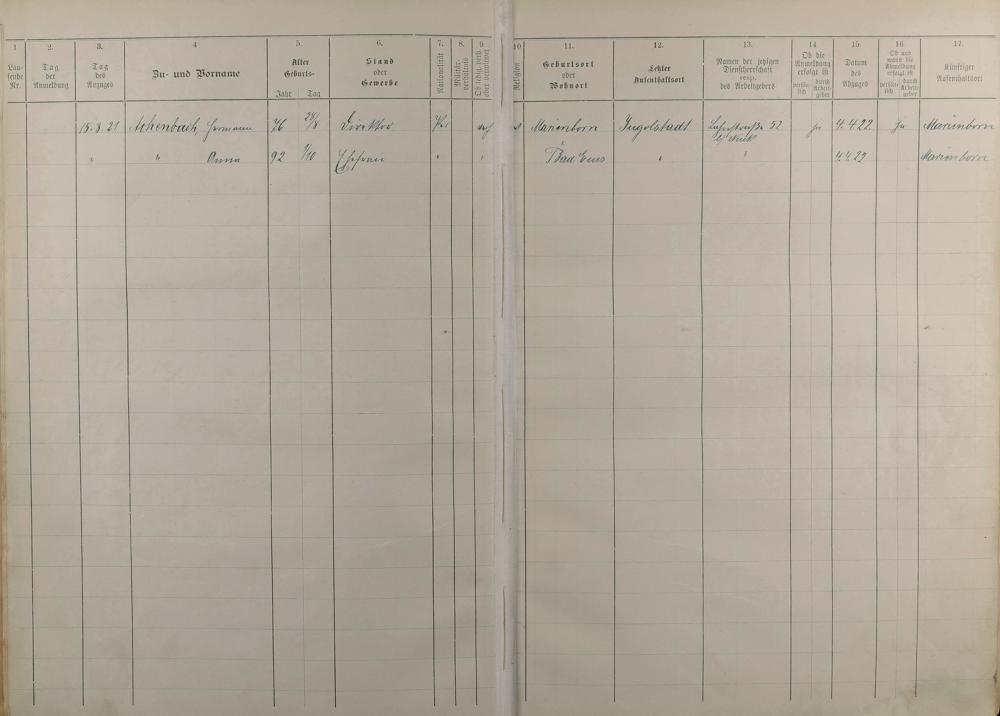 1 2. 3. 4 5. 6. 7. 8. 9 10 11. 12. 13. 14 15. 16 17.
Lau-
fende
Nr.
Tag
der
Anmeldung
Tag
des
Anzuges
Zu- und Vorname
Alter
Geburts-
Jahr Tag
Stand
oder
Gewerbe
Nationalität
Militär-
verhältnis
Ob ledig, verh.
oder verwitwet
Religion
Geburtsort
oder
Wohnort
Letzter
Aufenthaltsort
Namen der jetzigen
Dienstherrschaft
resp.
des Arbeitgebers
Ob die
Anmeldung
erfolgt ist
persön-
lich
durch
Arbeit-
geber
Datum
des
Abzuges
Ob und
wann die
Abmeldung
erfolgt ist
persön-
lich
durch
Arbeit-
geber
Künftiger
Aufenthaltsort
15.8.21 Achenbach, Hermann 76 28/8 Direktor Pr. verh Marienborn Ingolstadt 52 ja 4.4.22 Ja Marienborn
" " Anna 92 /10 Ehefrau " " Bad Ems " " 4.4.22 Marienborn